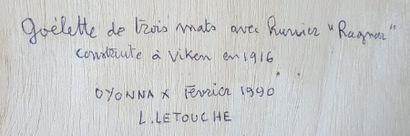 Goëlette de trois mats avec hunier "Ragnar"
construite à Viken en 1916
OYONNAX Février 1990
L. LETOUCHE